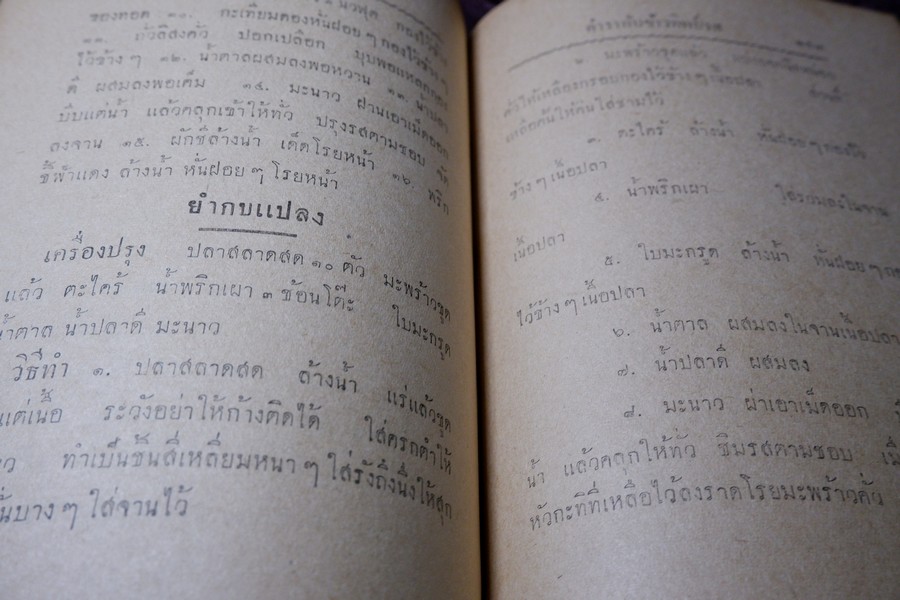 ของทอด ๑๐. กะเทียมดองหั่นฝอย ๆ กองไว้ข้าง ๆ
๑๑. ถั่วลิสงคั่ว ปอกเปลือก บุบพอแหลกกอง
ไว้ข้าง ๆ ๑๒. น้ำตาลผสมลงพอหวาน ๑๓. น้ำปลา
ดี ผสมลงพอเค็ม ๑๔. มะนาว ฝานเอาเม็ดออก
บีบแต่น้ำ แล้วคลุกเข้าให้ทั่ว ปรุงรสตามชอบ จัด
ลงจาน ๑๕. ผักชีล้างน้ำ เด็ดโรยหน้า ๑๖. พริก
ชี้ฟ้าแดง ล้างน้ำ หั่นฝอย ๆ โรยหน้า
ยำกบแปลง
เครื่องปรุง ปลาสลาดสด ๑๐ ตัว มะพร้าวขูด
แล้ว ตะไคร้ น้ำพริกเผา ๓ ช้อนโต๊ะ ใบมะกรูด
น้ำตาล น้ำปลาดี มะนาว
วิธีทำ ๑. ปลาสลาดสด ล้างน้ำ แร่แล้วขูด
แต่เนื้อ ระวังอย่าให้ก้างติดได้ ใส่ครกตำให้
ทำเป็นชิ้นสี่เหลี่ยมหนา ๆ ใส่รังถึงนึ่งให้สุก
บาง ๆ ใส่จานไว้
ตำรากับข้าว
๒ มะพร้าวขูดแล้ว
คั่วให้เหลืองกรอบกองไว้ข้าง ๆ เนื้อปลา
เหลือคั้นให้ข้นใส่ชามไว้
๓. ตะไคร้ ล้างน้ำ หั่นฝอย ๆ กองไว้
ข้าง ๆ เนื้อปลา
๔. น้ำพริกเผา ใส่ผสมลงในจาน
เนื้อปลา
๕. ใบมะกรูด ล้างน้ำ หั่นฝอย ๆ กอง
ไว้ข้าง ๆ เนื้อปลา
๖. น้ำตาล ผสมลงในจานเนื้อปลา
๗. น้ำปลาดี ผสมลง
๘. มะนาว ผ่าเอาเม็ดออก
น้ำ แล้วคลุกให้ทั่ว ชิมรสตามชอบ
หัวกะทิที่เหลือไว้ลงราดโรยมะพร้าวคั่ว